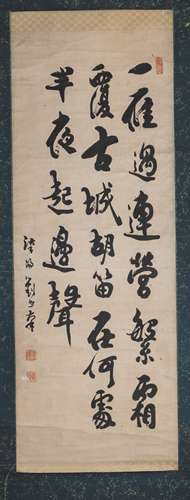 一雁過連營繁霜
覆古城胡笳在何處
半夜起邊聲
劉